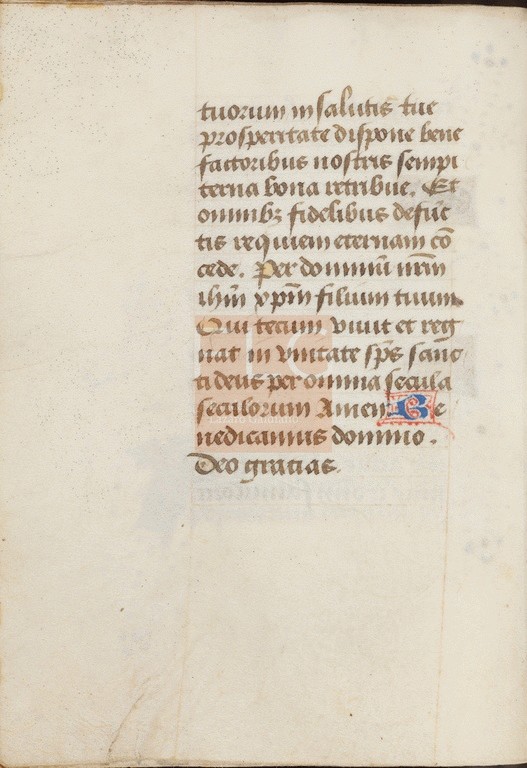 tuorum in salutis tue
prosperitate dispone bene
factoribus nostris sempi
terna bona retribue. Et
omnibꝫ fidelibus defūc
tis requiem eternam cō
cede. Per dominū nr̄m
ihm̄ xpm̄ filium tuum
Qui tecum viuit et reg
nat in vnitate sp̄s sanc
ti deus per omnia secula
seculorum Amen Be
nedicamus domino.
Deo gracias.